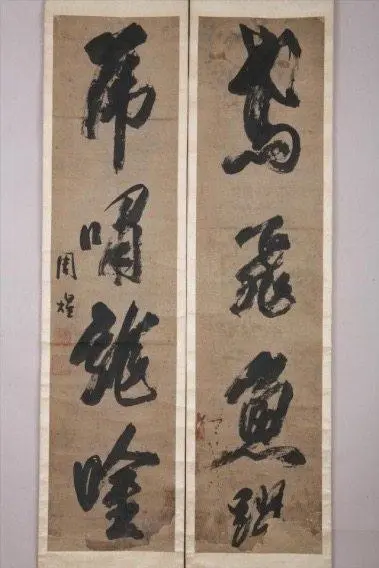 鳶飛魚躍
虎嘯龍唫
周煌